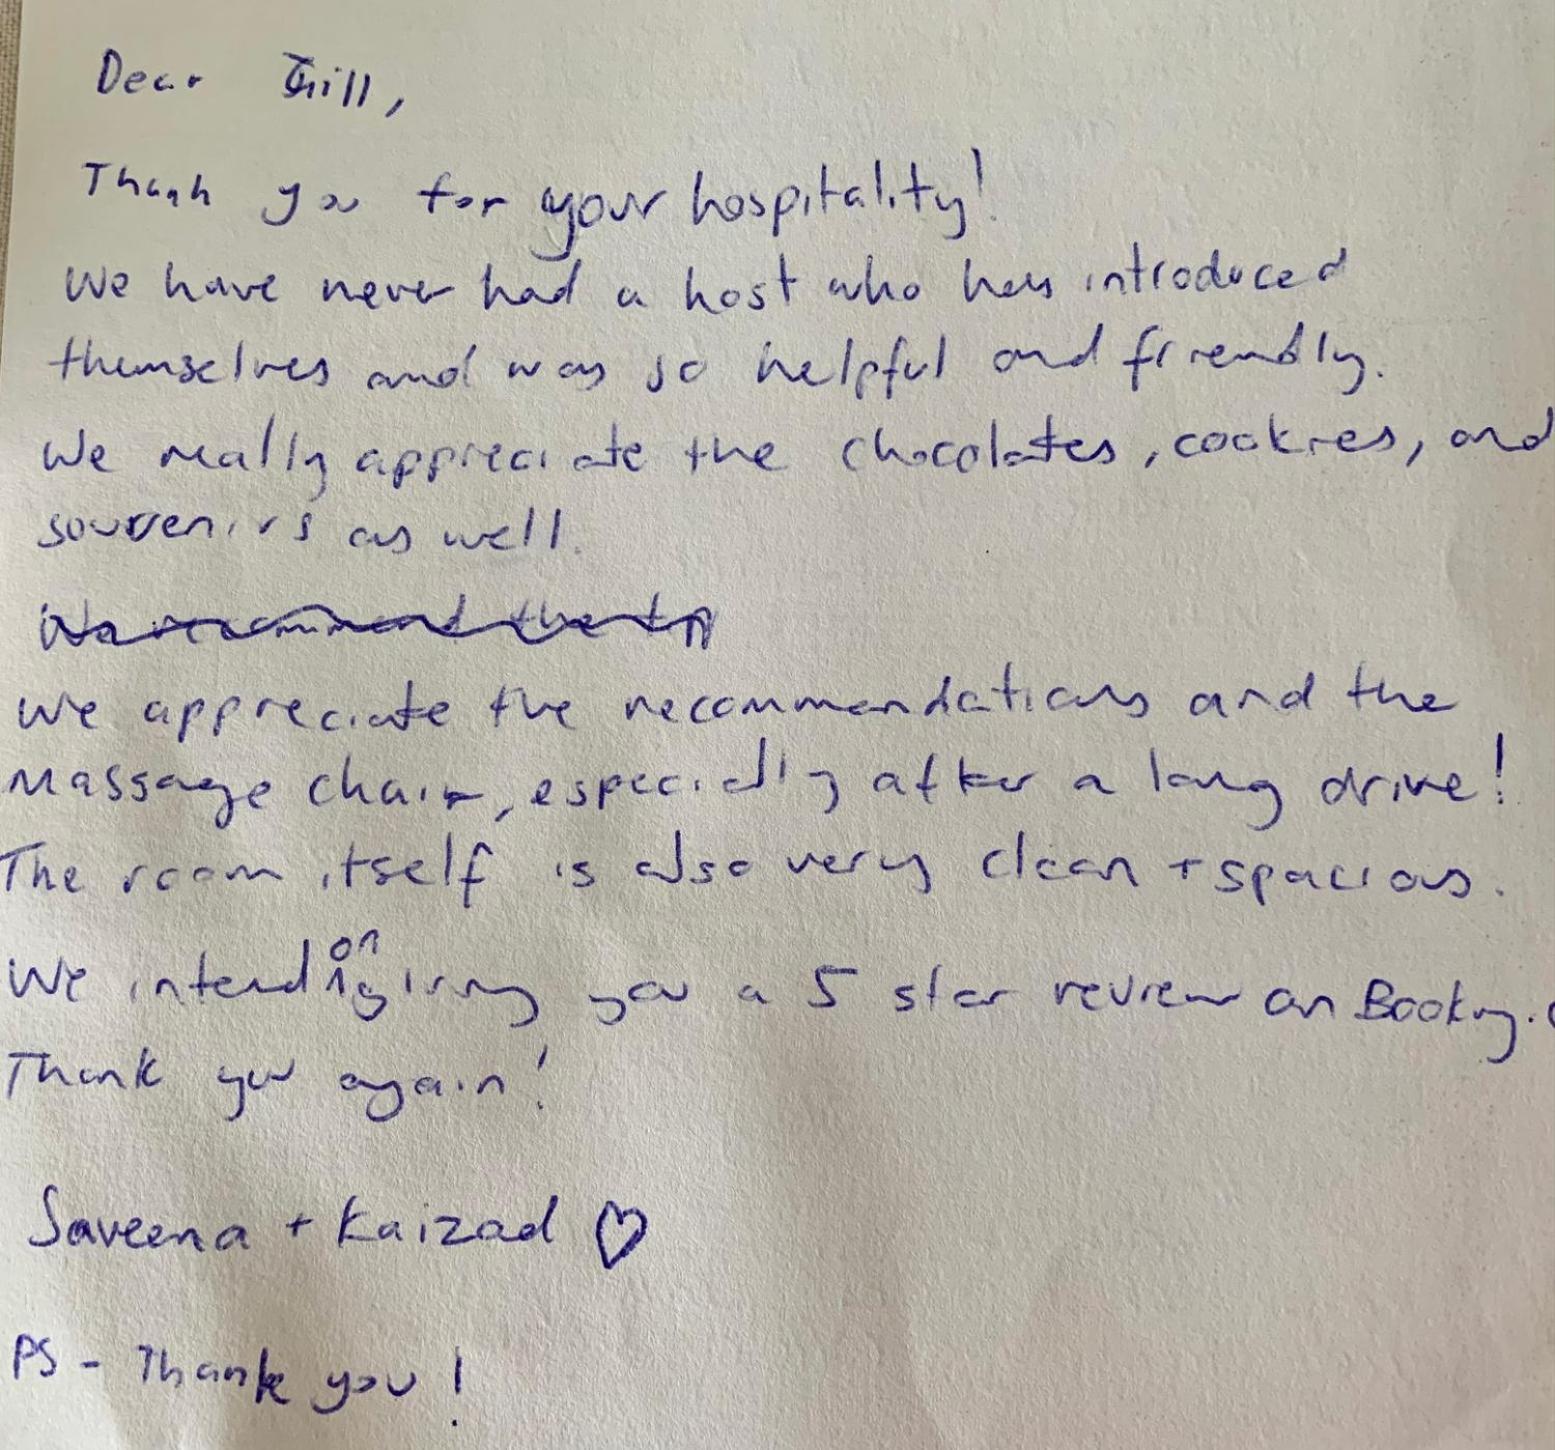 Dear Jill,
Thank you for your hospitality!
We have never had a host who has introduced
themselves and was so helpful and friendly.
We really appreciate the chocolates, cookies, and
souvenirs as well.
We recommend the
We appreciate the recommendations and the
massage chair, especially after a long drive!
The room itself is also very clean + spacious.
We intend on giving you a 5 star review on Booking.c
Thank you again!
Saveena + Kaizad ♡
PS - Thank you!